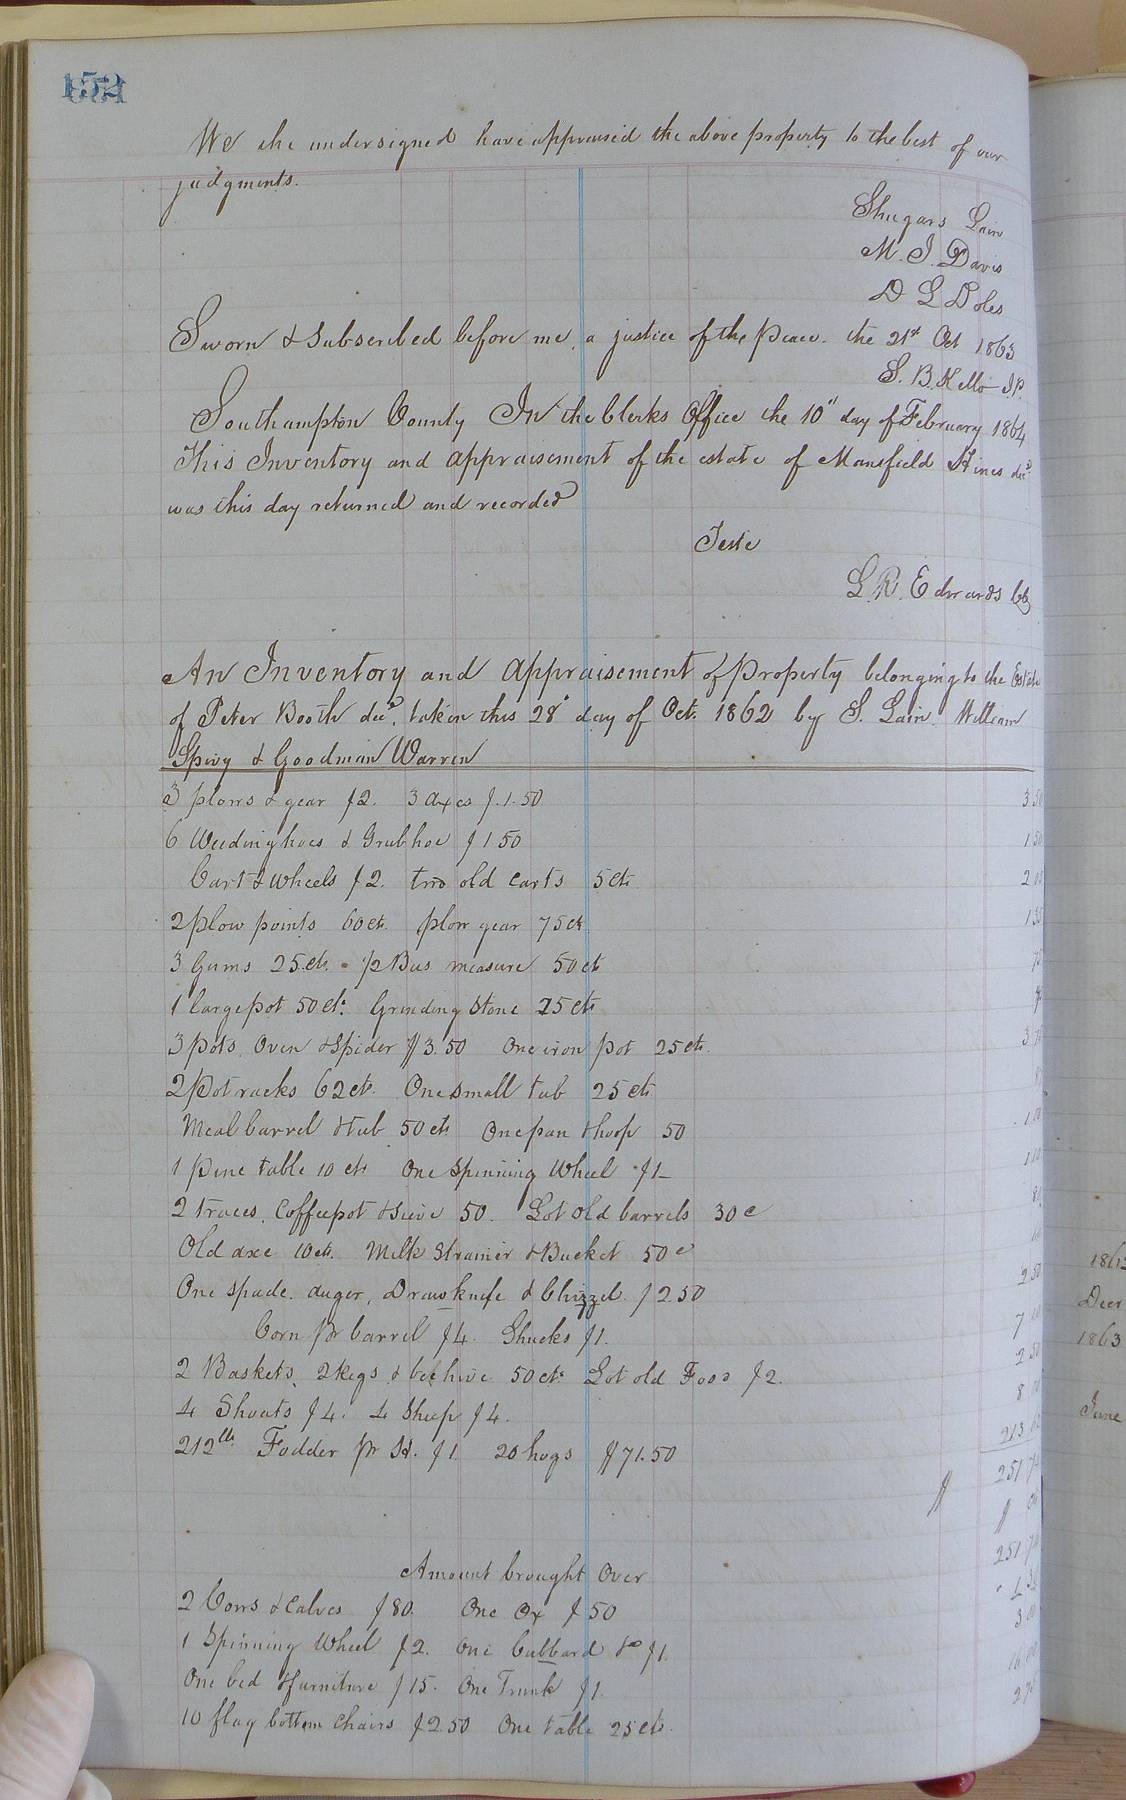 We the undersigned have appraised the above property to the best of our
judgments.
Shugars Lain
M. J. Davis
D L Doles
Sworn & Subscribed before me, a justice of the peace. the 21st Oct 1863
S. B. Kello J.P.
Southampton County In the Clerks Office the 10" day of February 1864
This Inventory and appraisement of the estate of Mansfield Hines decd.
was this day returned and recorded
Teste
L. R. Edwards Ck
An Inventory and appraisement of Property belonging to the Estate
of Peter Booth decd. taken this 28" day of Oct. 1862 by S. Lain. William
Spivy & Goodman Warren
3 plows & gear $2. 3 axes $.1.50 3.50
6 Weedinghoes & Grubhoe $1 50 1 50
Cart & Wheels $2. two old carts 5cts 2
2 plow points 60cts. plow gear 75cts 1 35
3 Gums 25.cts. 1/2 Bus measure 50cts 75
1 large pot 50cts. Grinding Stone 25cts
3 pots, Oven & Spider $3.50 One iron pot 25cts. 3.75
2 Pot racks 62cts. One small tub 25cts
Meal barrel & tub 50cts One pan & hoop 50 1 00
1 Pine table 10 cts One Spinning Wheel $1 1 10
2 traces, Coffeepot & sieve 50. Lot old barrels 30c 80
Old axe 10cts. Milk Strainer & Bucket 50c
One spade. auger, Drawknife & Chizzel. $2 50 2 50
Corn pr barrel $4. Shucks $1. 7
2 Baskets, 2 kegs & beehive 50cts Lot old Food $2. 2 50
4 Shoats $4. 4 Sheep $4. 8
212lbs Fodder pr H. $1 20 hogs $71.50 213
$ 251 74
$
251 74
Amount brought Over
2 Cows & Calves $80. One Ox $50
1 Spinning Wheel $2. One Cubbard do $1. 3
One bed & furniture $15. One Trunk $1. 16
10 flag bottom chairs $2.50 One table 25cts. 2 75
1863
Decr
1863
June